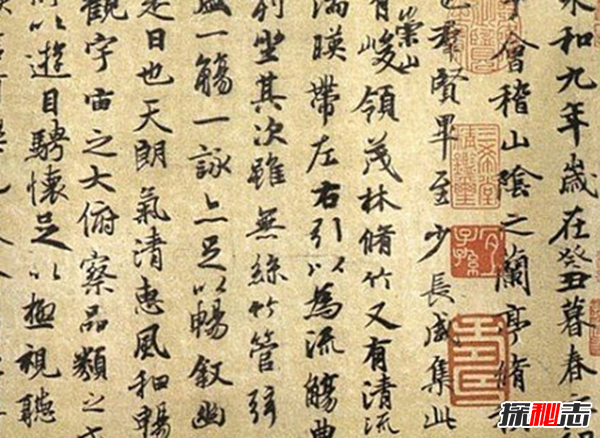 永和九年歲在癸丑暮春
會稽山陰之蘭亭脩
也羣賢畢至少長咸集此
有崇山峻領茂林脩竹又有清流
湍暎帶左右引以為流觴曲
列坐其次雖無絲竹管弦
盛一觴一詠亦足以暢叙幽
是日也天朗氣清惠風和暢
觀宇宙之大俯察品類之
所以遊目騁懷足以極視聽
三希堂精鑑璽
宜子孫
探秘志